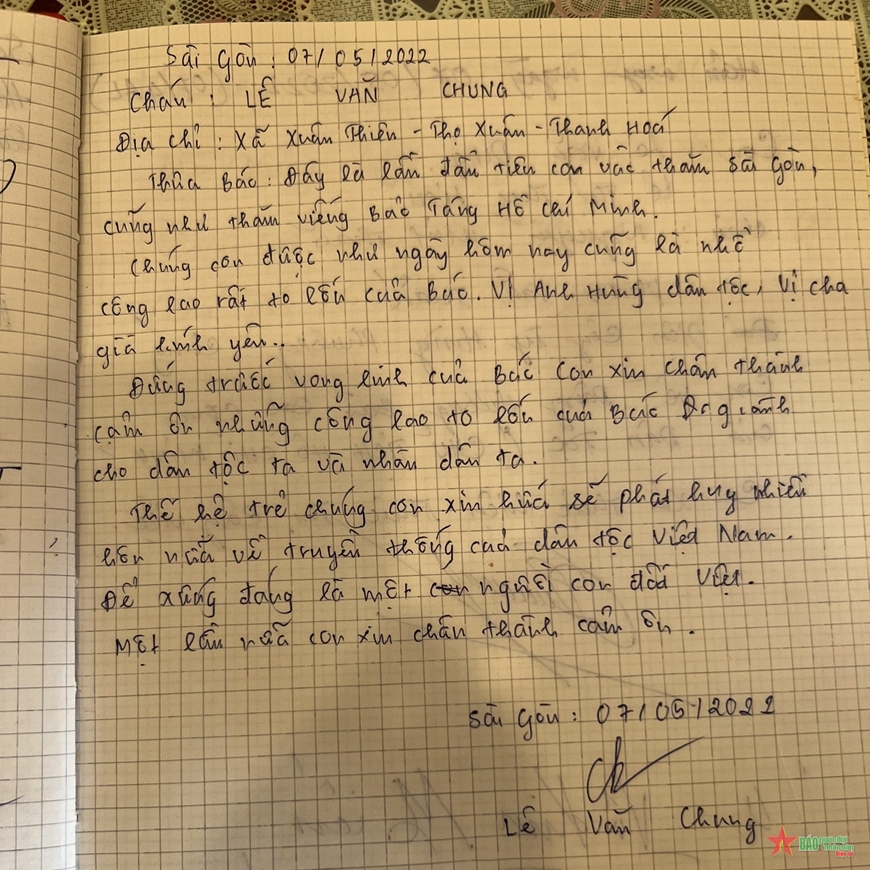 Sài Gòn : 07/05/2022
Cháu : LÊ VĂN CHUNG
Địa chỉ : Xã Xuân Thiên - Thọ Xuân - Thanh Hoá
Thưa Bác : Đây là lần đầu tiên con vào thăm Sài Gòn,
cũng như thăm viếng Bảo Tàng Hồ Chí Minh.
Chúng con được như ngày hôm nay cũng là nhờ
công lao rất to lớn của Bác. Vị Anh Hùng dân tộc, Vị cha
già kính yêu..
Đứng trước vong linh của Bác con xin chân thành
cảm ơn những công lao to lớn của Bác đã giành
cho dân tộc ta và nhân dân ta.
Thế hệ trẻ chúng con xin hứa sẽ phát huy nhiều
hơn nữa về truyền thống của dân tộc Việt Nam.
Để xứng đáng là một người con đất Việt.
Một lần nữa con xin chân thành cảm ơn.
Sài Gòn : 07/05/2022
Lê Văn Chung
BÁO